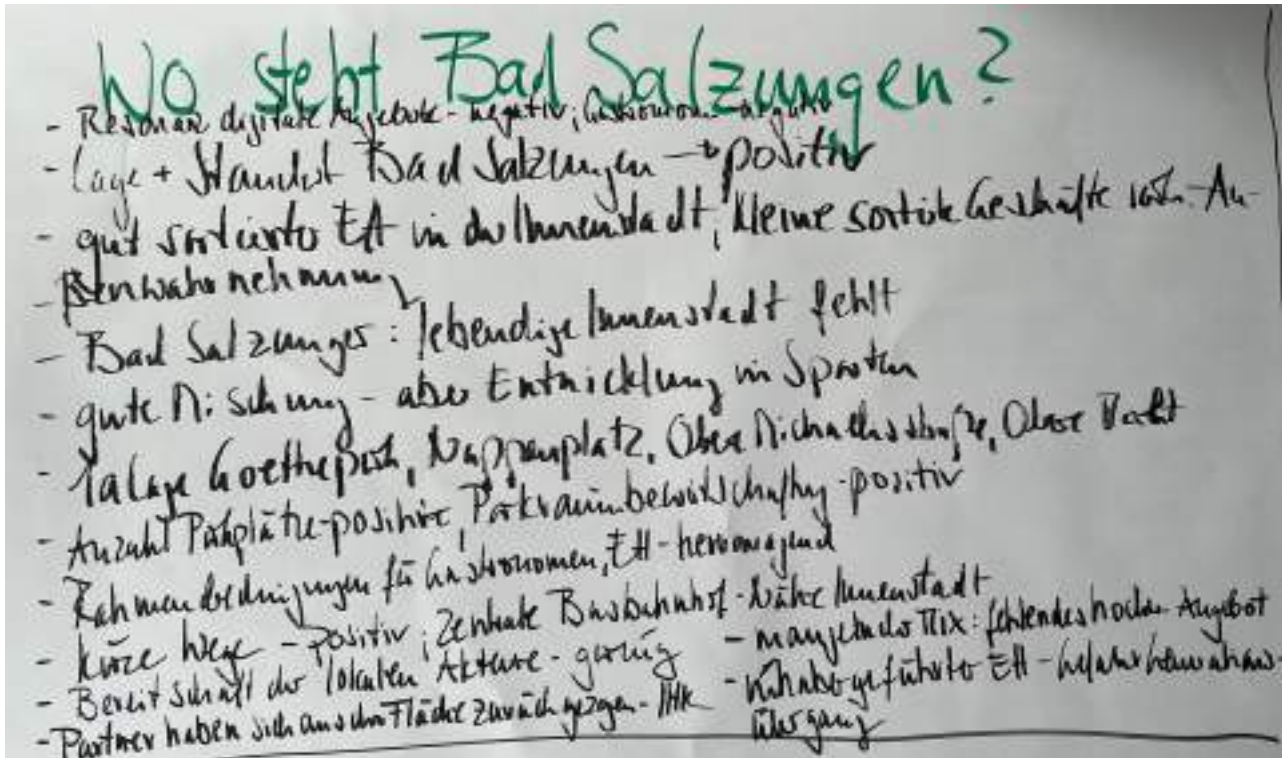 Wo steht Bad Salzungen?
- Resonanz digitale Angebote - negativ; Gastronom - negativ
- Lage + Standort Bad Salzungen → positiv
- gut sortierter EH in der Innenstadt, kleine Geschäfte - Au-
- ßenwahrnehmung
- Bad Salzunger: lebendige Innenstadt fehlt
- gute Mischung - aber Entwicklung in Sparten
- 1a Lage Goethepark, Nappenplatz, Obere Michaelisstraße, Obere
- Anzahl Parkplätze - positive Parkraumbewirtschaftung - positiv
- Rahmenbedingungen für Gastronomen, EH - hervorragend
- kurze Wege - positiv; Zentrale Busbahnhof - Nähe Innenstadt
- Bereitschaft der lokalen Akteure - gering
- Partner haben sich aus der Fläche zurückgezogen - IHK
- mangelnder Mix: fehlendes Angebot
- inhabergeführter EH - Gefahr
übergang